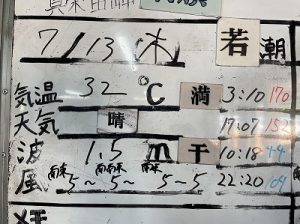 7/13 木 若潮
気温 32 ℃ 満 3:10 170
天気 晴 17:07 152
波 1.5 m 干 10:18 44
風 南東 5~ 南南東 5~ 南東 5~5 22:20